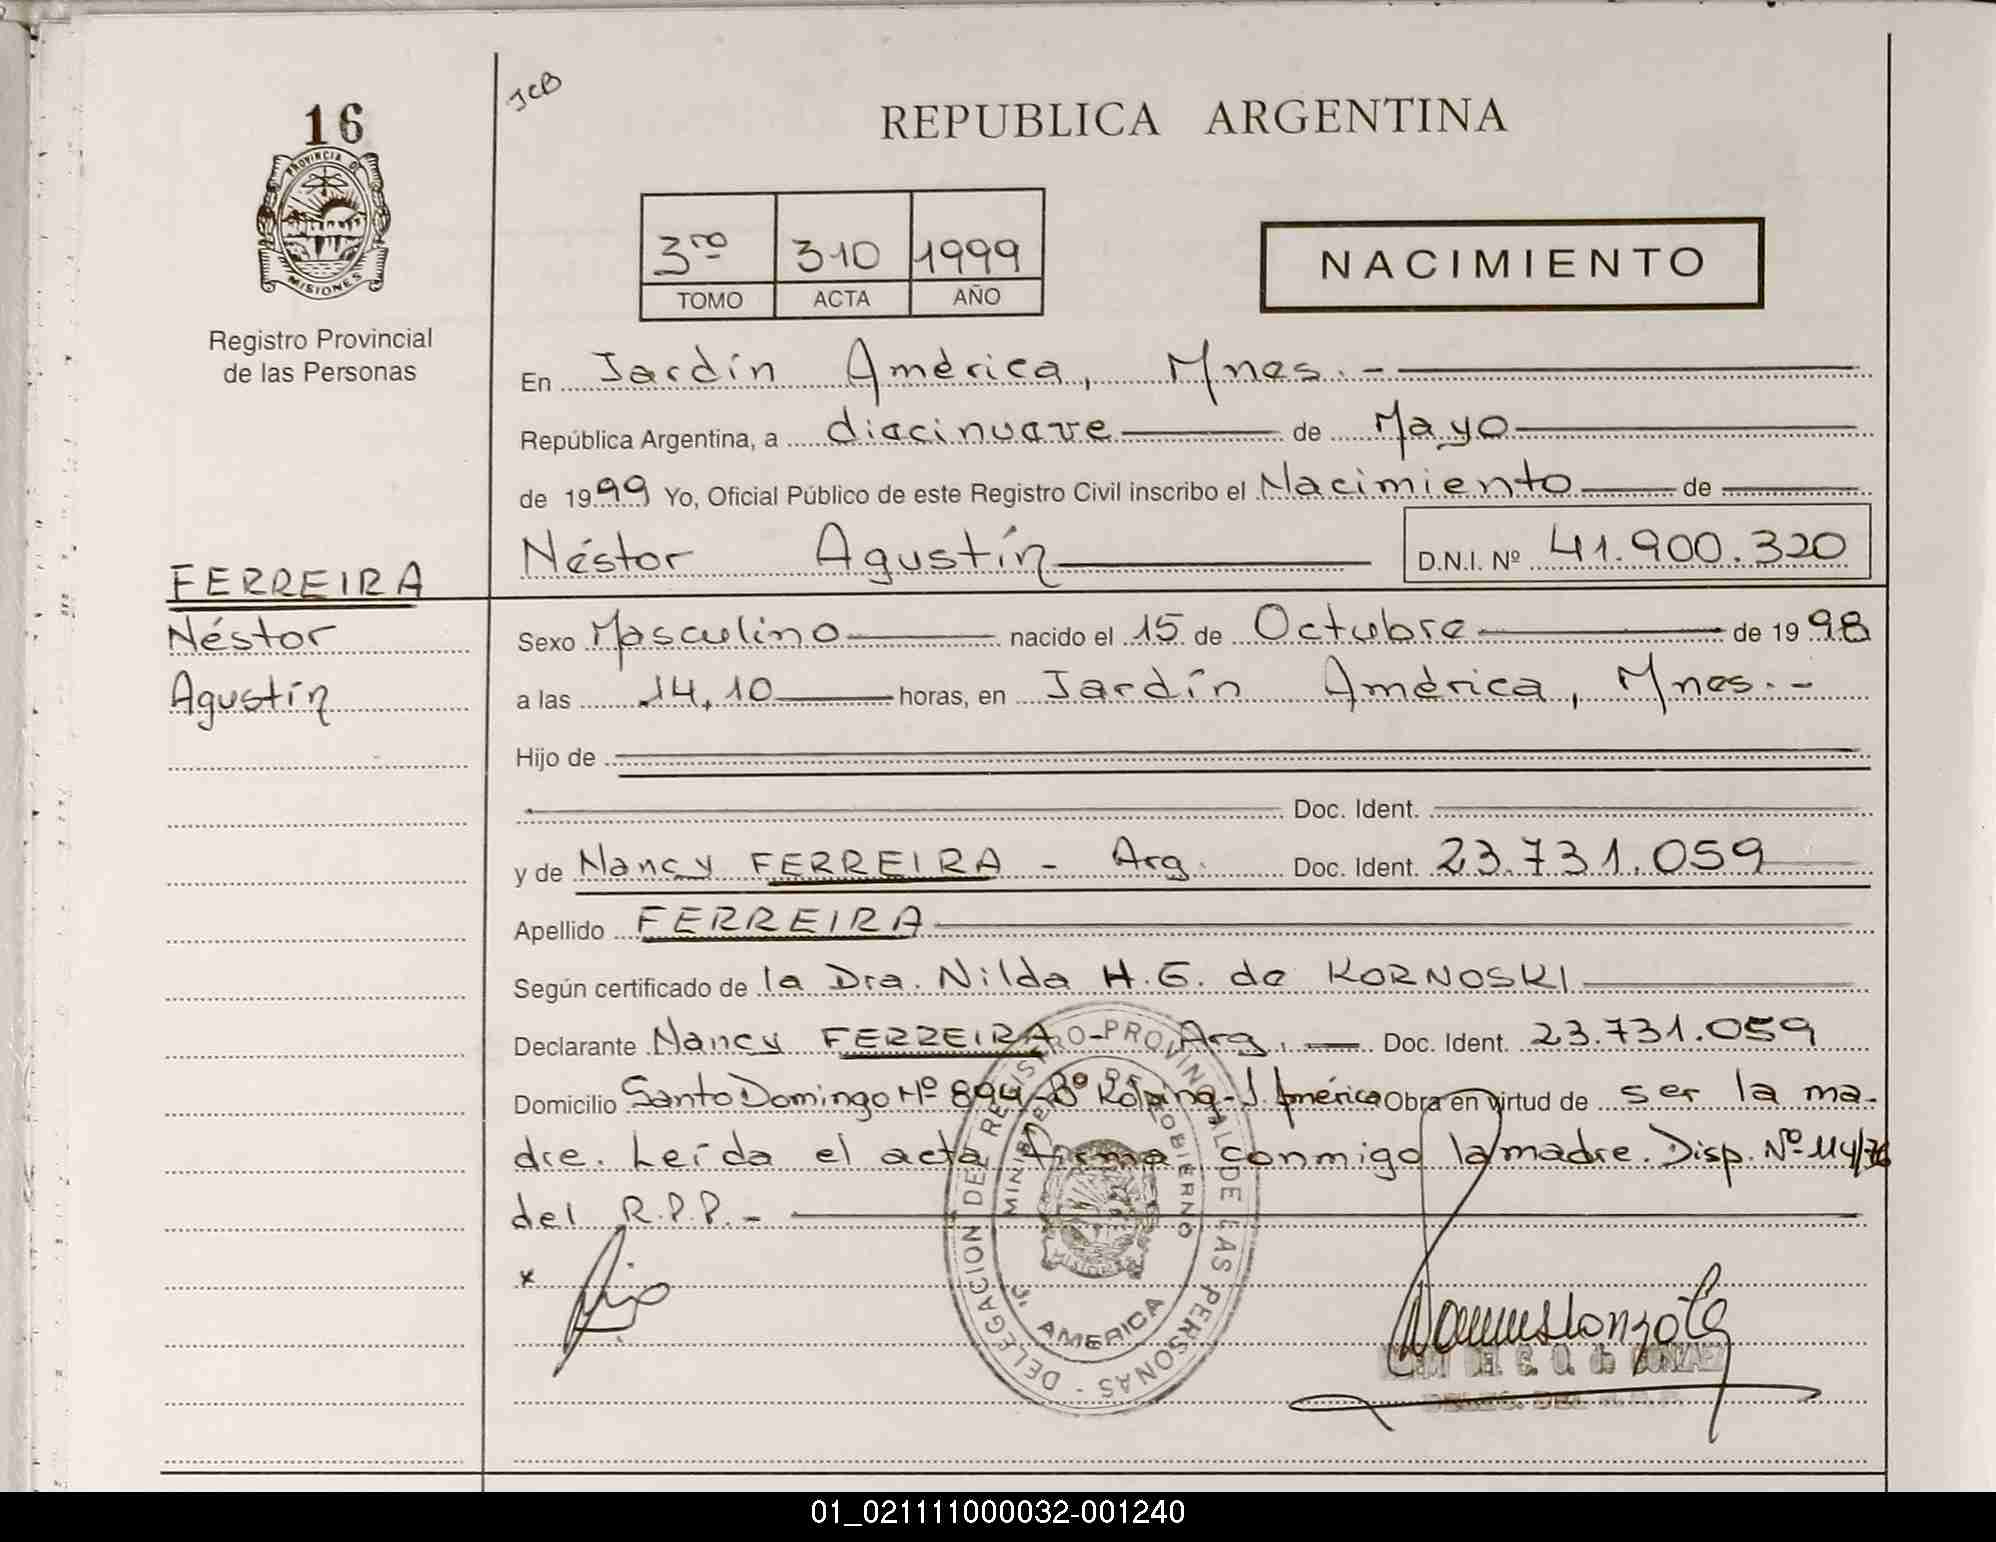 16
JCB
REPUBLICA ARGENTINA
PROVINCIA DE
MISIONES
Registro Provincial
de las Personas
3ro 310 1999
TOMO ACTA AÑO
NACIMIENTO
En Jardín América, Mnes.-
República Argentina, a diecinueve de Mayo
de 1999 Yo, Oficial Público de este Registro Civil inscribo el Nacimiento de
Néstor Agustín D.N.I. Nº 41.900.320
FERREIRA
Néstor
Agustín
Sexo Masculino nacido el 15 de Octubre de 1998
a las 14,10 horas, en Jardín América, Mnes.-
Hijo de
Doc. Ident.
y de Nancy FERREIRA - Arg. Doc. Ident. 23.731.059
Apellido FERREIRA
Según certificado de la Dra. Nilda H. G. de KORNOSKI
Declarante Nancy FERREIRA Arg. Doc. Ident. 23.731.059
Domicilio Santo Domingo Nº 894-Bº Kolping-J. América Obra en virtud de ser la ma-
dre. Leída el acta firma conmigo la madre. Disp. Nº 114/76
del R.P.P.-
x
DELEGACION DEL REGISTRO PROVINCIAL DE LAS PERSONAS -
MINISTERIO DE GOBIERNO
J. AMERICA
01_021111000032-001240